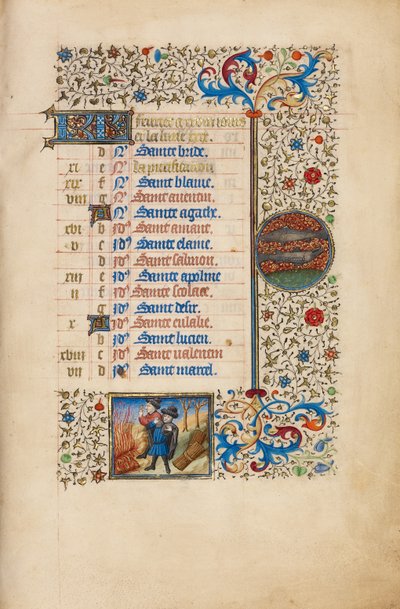 d N° Sainte bride.
xi e N°
xix f N° Saint blaiue.
viii g N° Saint auentin.
A N° Sainte agathe.
xvi b id° Saint amant.
v c id° Sainte elaine.
d id° Saint salmon.
xiii e id° Sainte apoline
ii f id° Sainte scolace.
g id° Saint desir.
x A id° Sainte eulalie.
b id° Saint lucien.
xviii c id° Saint ualentin
vii d Saint marcel.